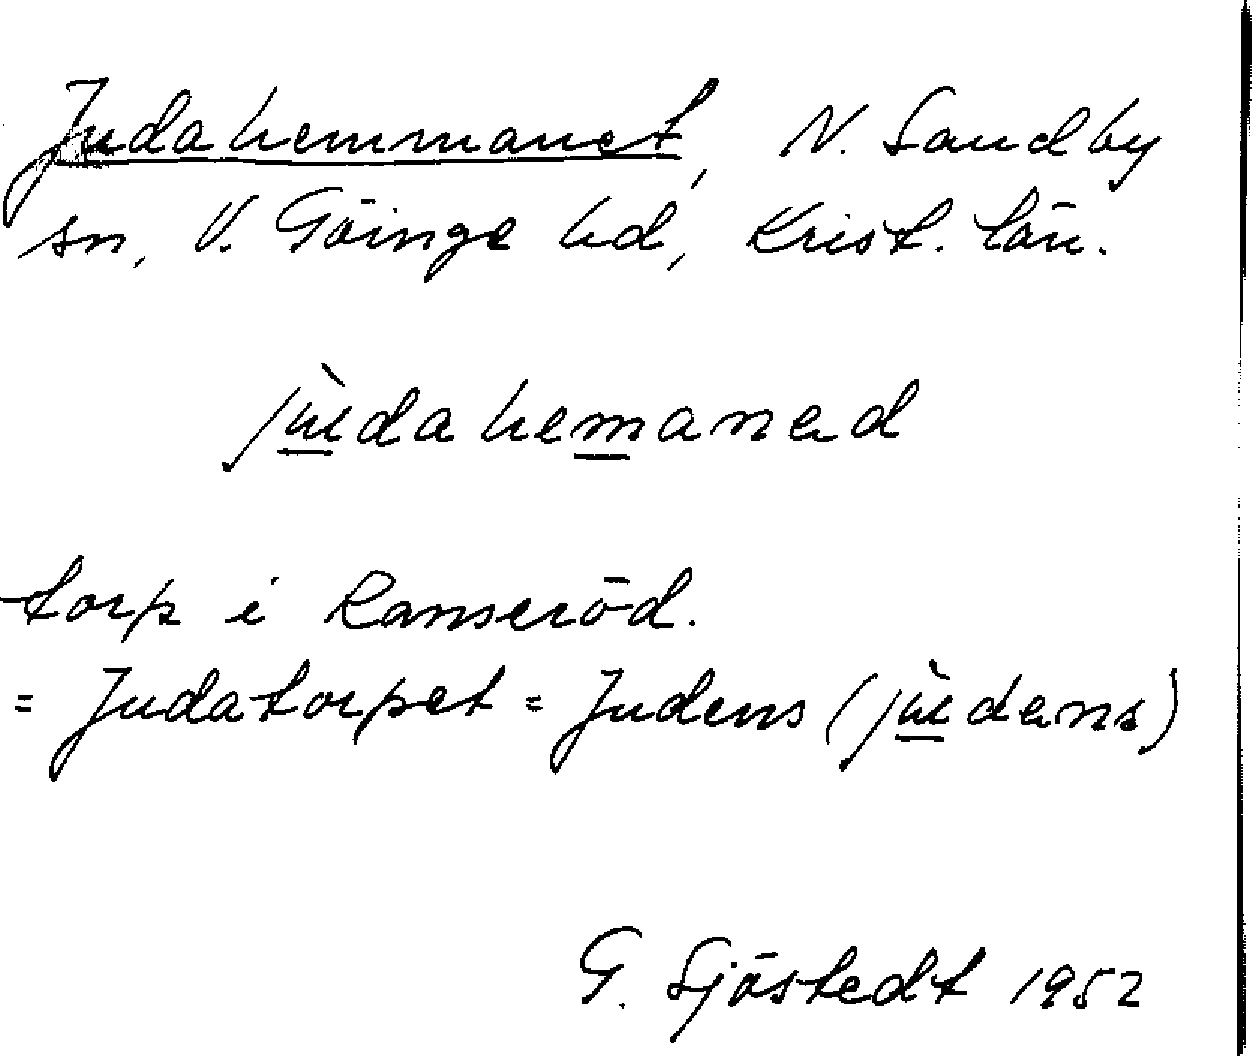 Judahemmanet, N. Sandby
sn, V. Göinge hd, Krist. län.
jùdahemanad
torp i Ranseröd.
= Judatorpet = Judens (jùdans)
G. Sjöstedt 1952